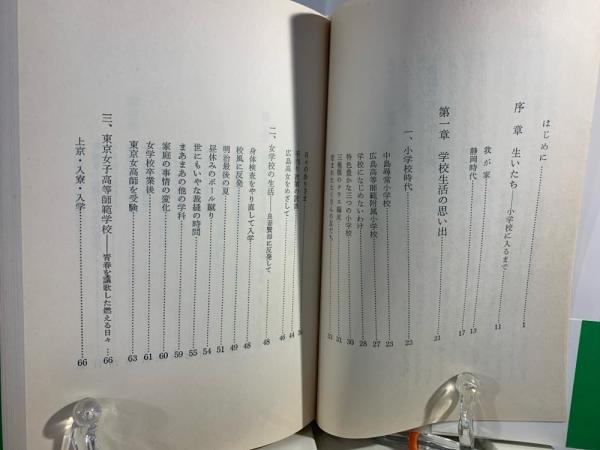 はじめに 1
序章 生いたち——小学校に入るまで 11
我が家 13
静岡時代 17
第一章 学校生活の思い出 21
一、小学校時代 23
中島尋常小学校 23
広島高等師範附属小学校 27
学校になじめないわけ 28
特色豊かな三つの小学校 30
三種類のクラス編成 31
広島高女をめざして 46
二、女学校の生活——良妻賢母に反発して 48
身体検査をやり直して入学 48
校風に反発 49
明治最後の夏 51
昼休みのボール蹴り 54
世にもいやな裁縫の時間 55
まあまあの他の学科 59
家庭の事情の変化 60
女学校卒業後 61
東京女高師を受験 63
三、東京女子高等師範学校——青春を謳歌した燃える日々 66
上京・入寮・入学 66